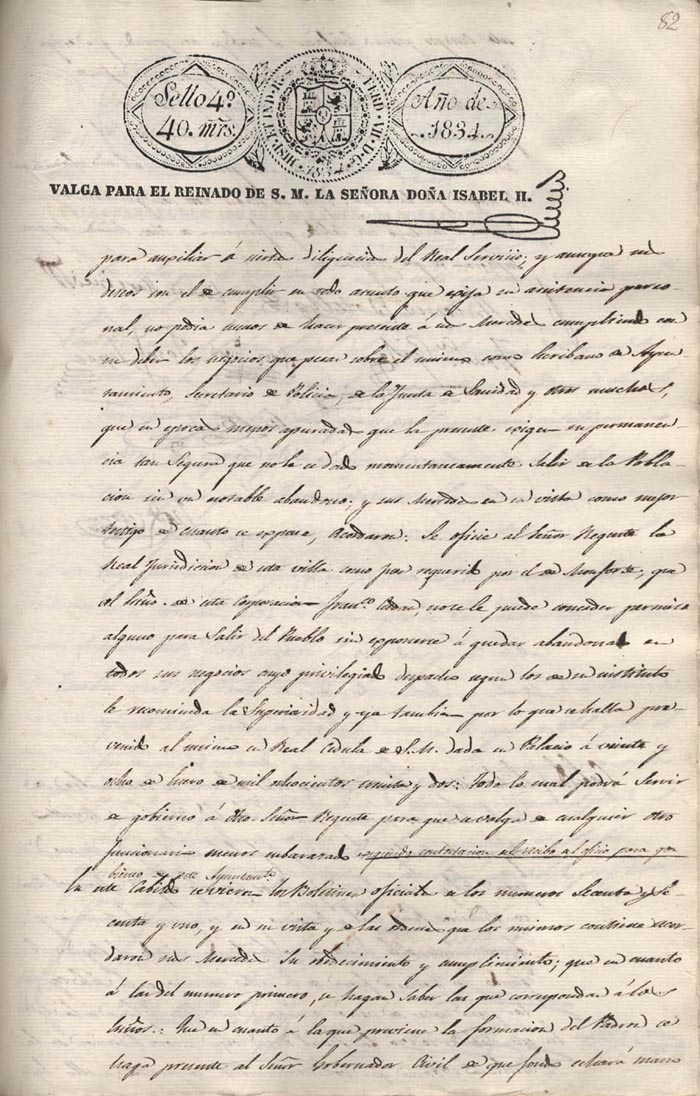 82
Sello 4º
40. mrs.
HISP. ET IND. R. FERD. VII. D. G.
1834
Año de
1834.
VALGA PARA EL REINADO DE S. M. LA SEÑORA DOÑA ISABEL II.
para auxiliar á cierta diligencia del Real Servicio; y aunque sus
deseos son el de cumplir en todo asunto que exija su asistencia perso-
nal, no podia menos de hacer presente á sus Mercedes cumpliendo con
su deber los negocios que pesan sobre el mismo como Escribano de Ayun-
tamiento, Secretario de Policia, de la Junta de Sanidad y otros muchos,
que en epoca menos apurada que la presente exigen su permanen-
cia tan segura que no le es dado momentaneamente salir de la Pobla-
cion sin un notable abandono; y sus Mercedes en su vista como mejor
testigo de cuanto se expone, Acordaron: Se oficie al Señor Regente la
Real Jurisdiccion de esta villa como por requerido por el de Monforte, que
al Esño. de esta Corporacion Franco. no se le puede conceder permiso
alguno para Salir del Pueblo sin exponerse á quedar abandonados
todos sus negocios cuyo privilegiado despacho segun los de su instituto
le recomienda la Superioridad y ya tambien por lo que se halla pre-
venido al mismo en Real Cedula de S.M. dada en Palacio á veinte y
ocho de Enero de mil ochocientos treinta y dos: Todo lo cual podrá Servir
de gobierno á dho. Señor Regente para que se valga de cualquier otro
funcionario menos embarazado contestacion al recibo al oficio para go-
bierno de este Ayuntamiento
En este Cabildo se vieron los Boletines oficiales de los numeros Sesenta y Se-
senta y uno, y en su vista y de las ordenes que los mismos contiene acor-
daron sus Mercedes su obedecimiento y cumplimiento; que en cuanto
á las del numero primero, se hagan saber las que correspondan á los
Esños.: Que en cuanto á la que previene la formacion del Padron se
haga presente al Señor Gobernador Civil de que fondo echará mano